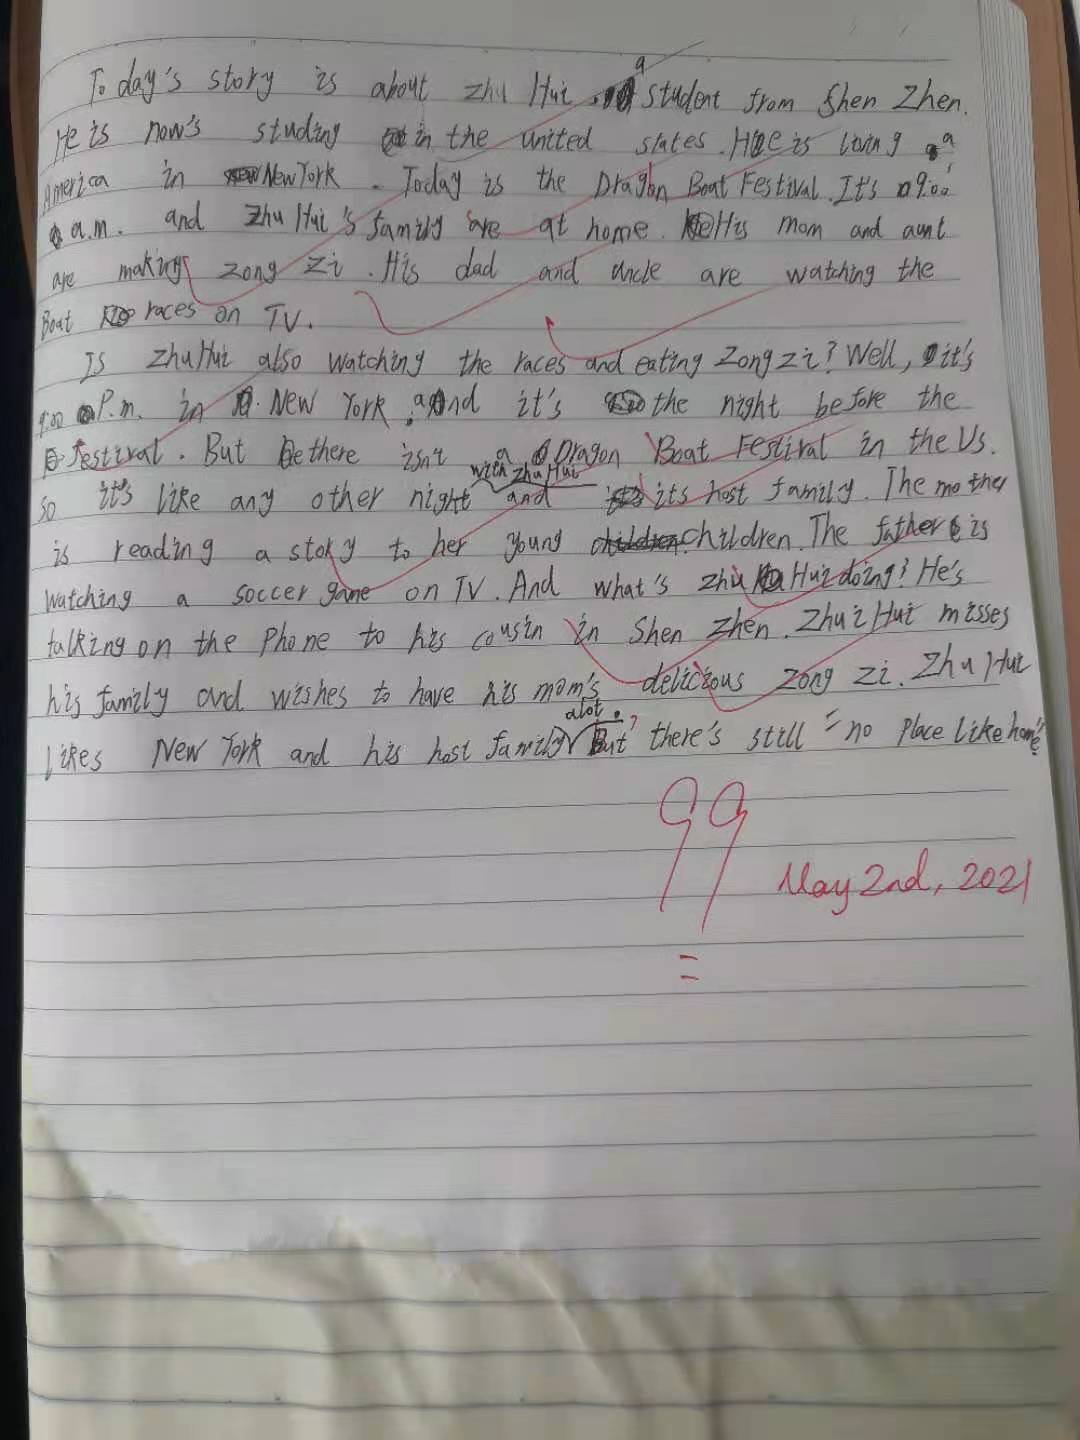 Today's story is about Zhu Hui. a student from Shen Zhen.
He is now's studing in the united states. He is living a
America in New York. Today is the Dragon Boat Festival. It's 9:00
a.m. and Zhu Hui's family are at home. His mom and aunt
are making zong zi. His dad and uncle are watching the
Boat races on TV.
Is Zhu Hui also watching the races and eating Zong zi? Well, it's
9:00 P.m. in New York. and it's the night before the
festival. But there isn't a Dragon Boat Festival in the Us.
So it's like any other night with Zhu Hui and its host family. The mother
is reading a story to her young children. The father is
watching a soccer game on TV. And what's Zhu Hui doing? He's
talking on the Phone to his cousin in Shen Zhen. Zhui Hui misses
his family and wishes to have his mom's delicious zong zi. Zhu Hui
likes New York and his host family alot. But there's still "no place like home".
99
May 2nd, 2021